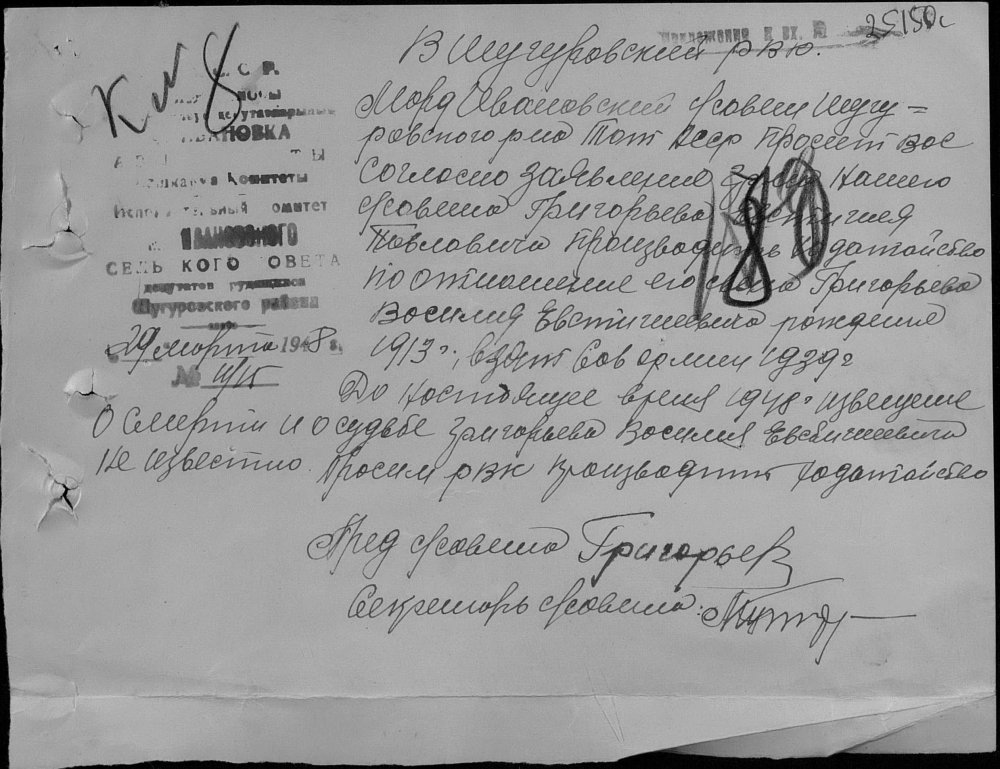 25150с
Приложение к вх. №
В Шугуровский РВК.
К № 8
С. С. Р.
ИВАНОВКА
Башкарма Комитеты
Исполнительный омитет
ИВАНОВСКОГО
СЕЛЬ КОГО ОВЕТА
депутатов трудящихся
Шугуровского района
29 марта 1948 г.
№
Морд Ивановский с/совет Шугу-
ровского р-на Тат АССР просит вас
согласно заявление гр-на нашего
с/совета Григорьева Евстигнея
Павловича производить ходатайство
по отношение его сына Григорьева
Василия Евстигнеевича рождения
1913 г., взят Сов армии 1939 г
До настоящее время 1948 г извещение
о смерти и о судьбе Григорьева Василия Евстигнеевича
не известно. Просим РВК производить ходатайство
Пред с/совета Григорьев
Секретарь с/совета: